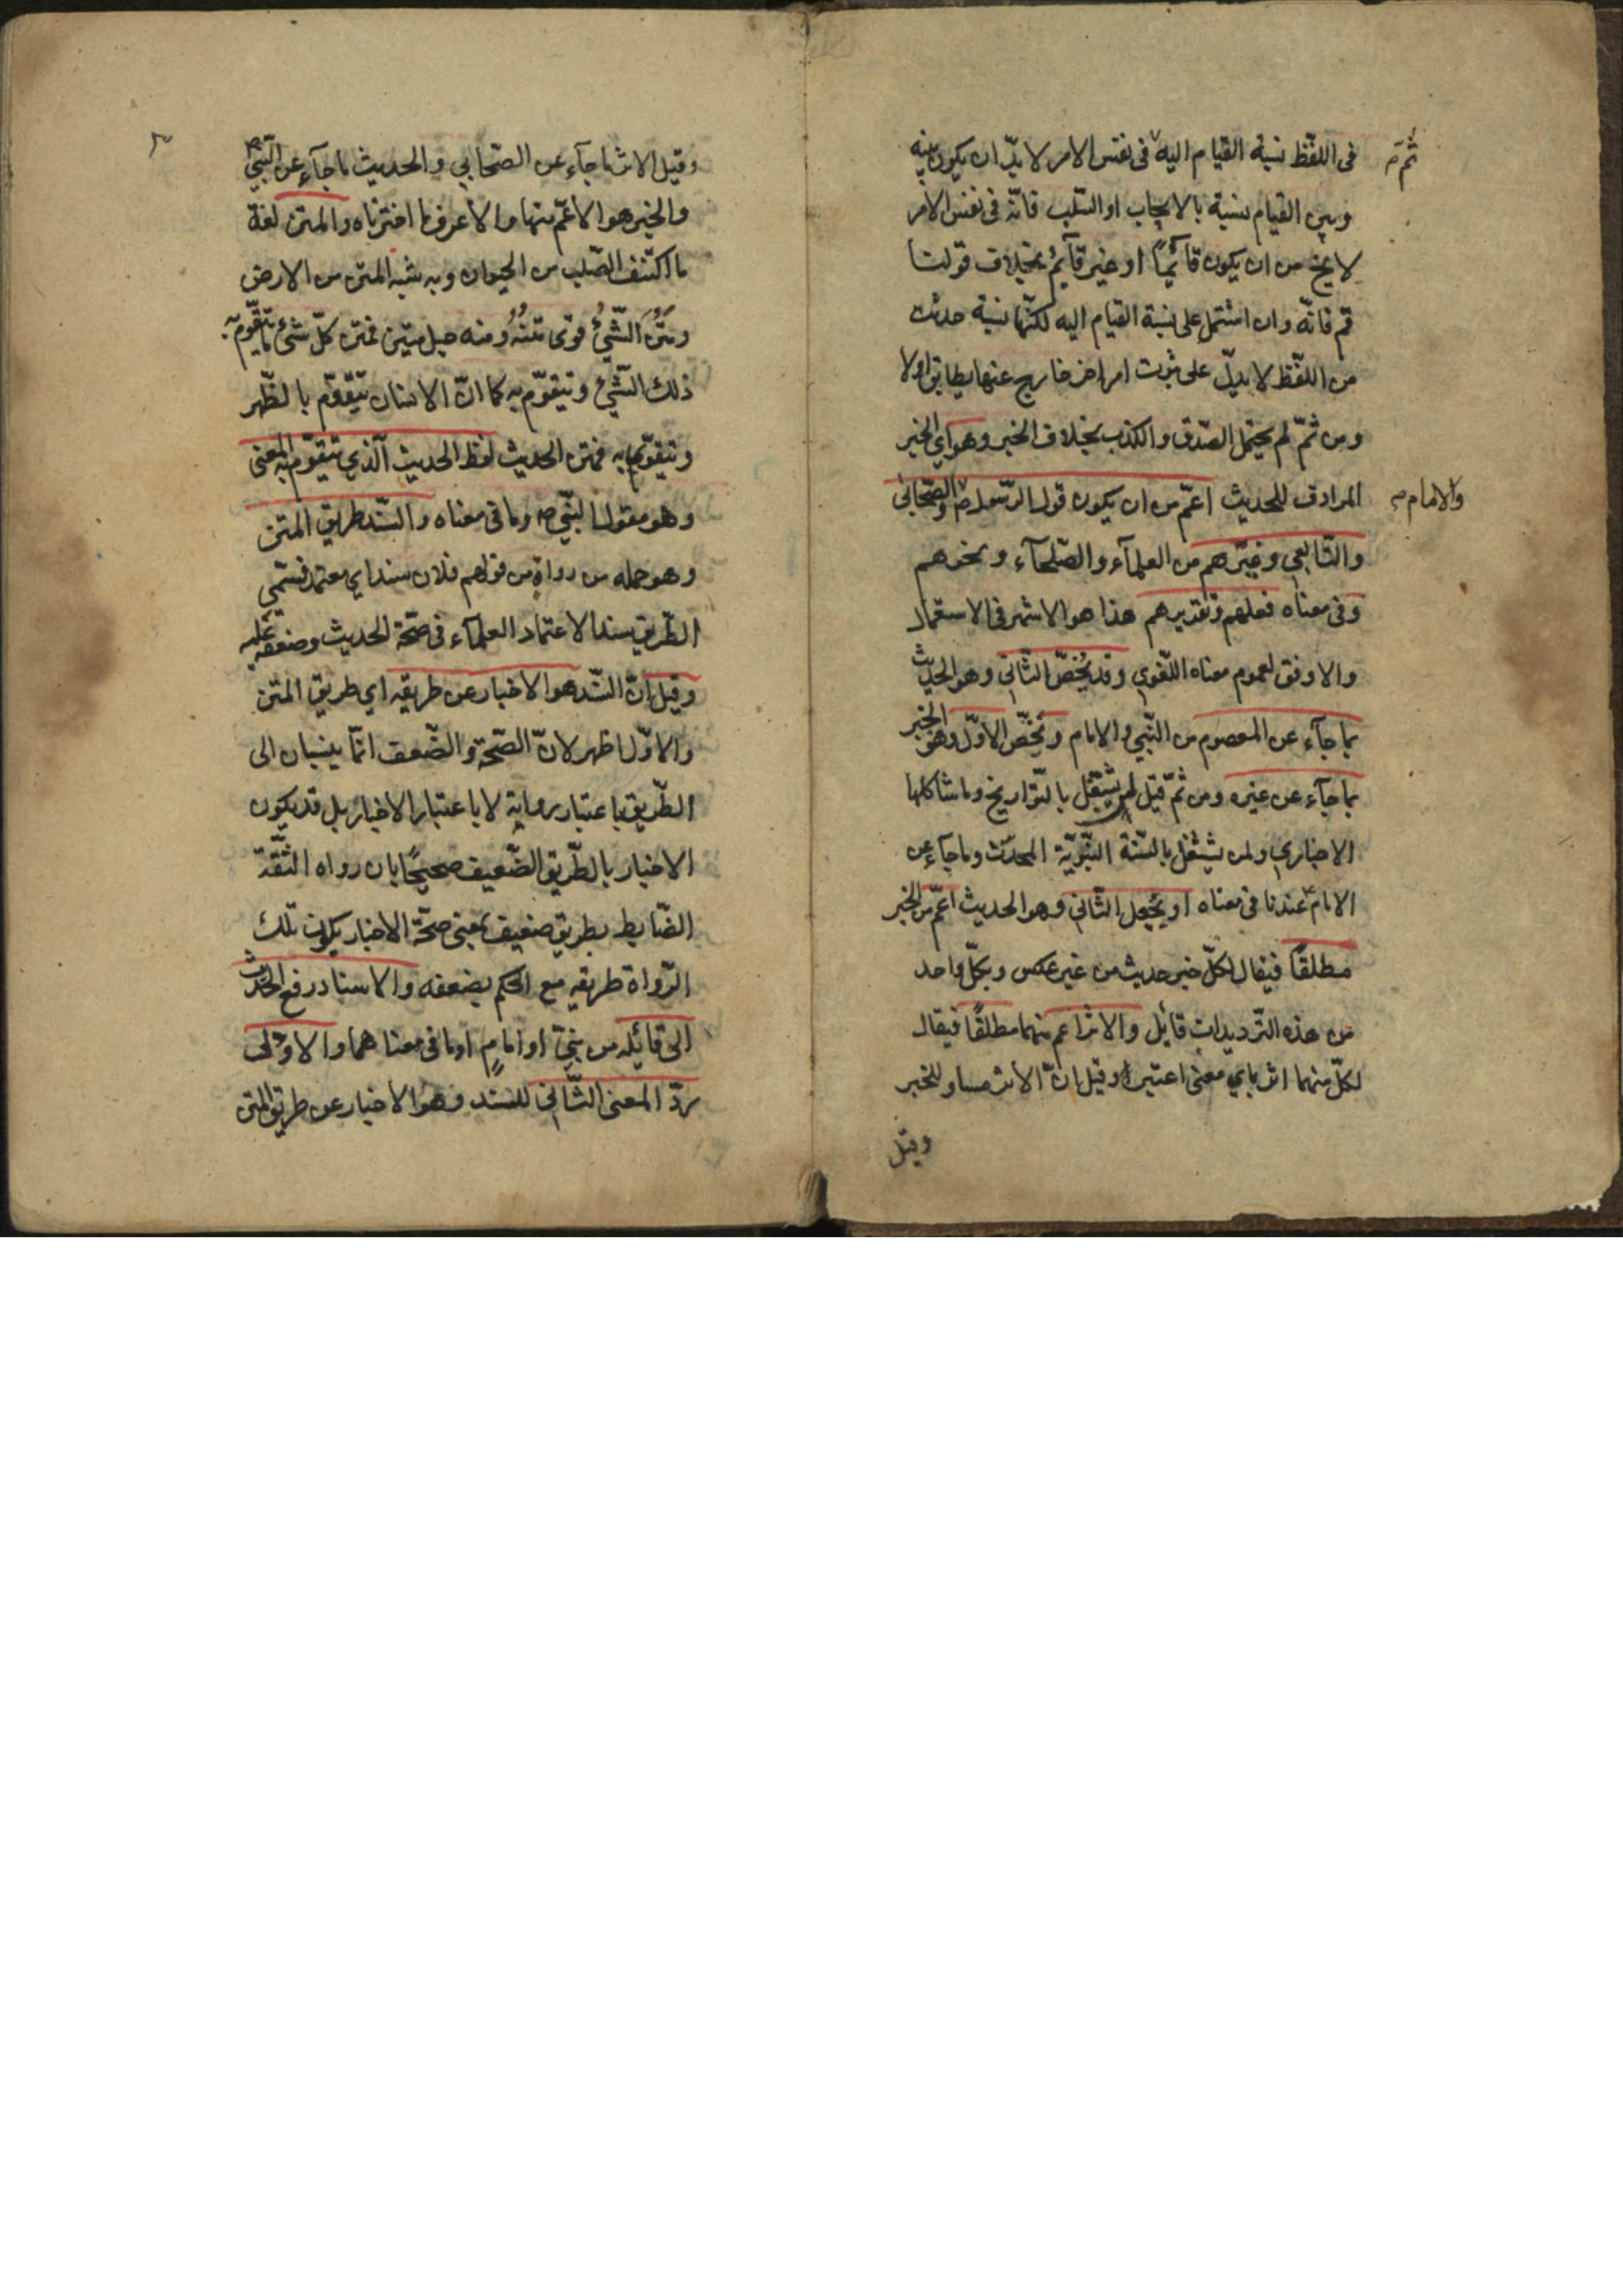 فى اللفظ نسبة القيام اليه فى نفس الامر لا بدّ ان يكون بينه
ثم
وبين القيام نسبة بالايجاب او السّلب فانّه فى نفس الامر
لا يخ من ان يكون قائمًا او غير قائم بخلاف قولنا
قم فانّه وان اشتمل على نسبة القيام اليه لكنّها نسبة حدثت
من اللّفظ لا يدلّ على ثبوت امر اخر خارج عنها يطابق اولا
ومن ثمّ لم يحتمل الصّدق والكذب بخلاف الخبر وهو اي الخبر
المرادف للحديث اعمّ من ان يكون قول الرّسول ص والصّحابى
والامام
والتّابعي وغيرهم من العلمآء والصّلحآء ونحوهم
وفى معناه فعلهم وتقديرهم هذا هو الاشهر فى الاستعمال
والاوفق لعموم معناه اللّغوي وقد يُخصّ الثّانى وهو الحديث
بما جآء عن المعصوم من النّبي والامام ويخصّ الاوّل وهو الخبر
بما جآء عن غيره ومن ثمّ قيل لمن يشتغل بالتّواريخ وما شاكلها
الاخباري ولمن يشتغل بالسّنة النّبويّة المحدّث وما جآء عن
الامام عندنا فى معناه او يُجعل الثّانى وهو الحديث اعمّ من الخبر
مطلقًا فيقال لكلّ خبر حديث من غير عكس وبكلّ واحد
من هذه التّرديدات قائل والاثر اعم منهما مطلقًا فيقال
لكلّ منهما اثر باي معنى اعتبر وقيل انّ الاثر مساو للخبر
وقيل
وقيل الاثر ما جآء عن الصّحابي والحديث ما جآء عن النّبي ص
والخبر هو الاعمّ منهما والاعرف ما اخترناه والمتن لغة
ما اكتنف الصّلب من الحيوان وبه شبه المتن من الارض
ومَتُنَ الشّيُ قوى متنُهُ ومنه حبل متين فمتن كلّ شئ ما يتقوّم به
ذلك الشّئ ويتقوّم به كما انّ الانسان يتقوّم بالظّهر
ويتقوّى به فمتن الحديث لفظ الحديث الّذي يتقوّم به المعنى
وهو مقول النّبي ص وما فى معناه والسّند طريق المتن
وهو جملة من رواة من قولهم فلان سند اي معتمد فسمّي
الطّريق سندا لاعتماد العلمآء فى صحّة الحديث وضعفه عليه
وقيل انّ السّند هو الاخبار عن طريقه اي طريق المتن
والاوّل اظهر لانّ الصّحّة والضّعف انّما ينسبان الى
الطّريق باعتبار رواية لا باعتبار الاخبار بل قد يكون
الاخبار بالطّريق الضّعيف صحيحًا بان رواه الثّقة
الضّابط بطريق ضعيف بمعنى صحّة الاخبار بكون تلك
الرّواة طريقه مع الحكم بضعفه والاسناد رفع الحديث
الى قائله من نبيّ او امامٍ او ما فى معناهما والاولى
ردّ المعنى الثّانى للسند وهو الاخبار عن طريق المتن